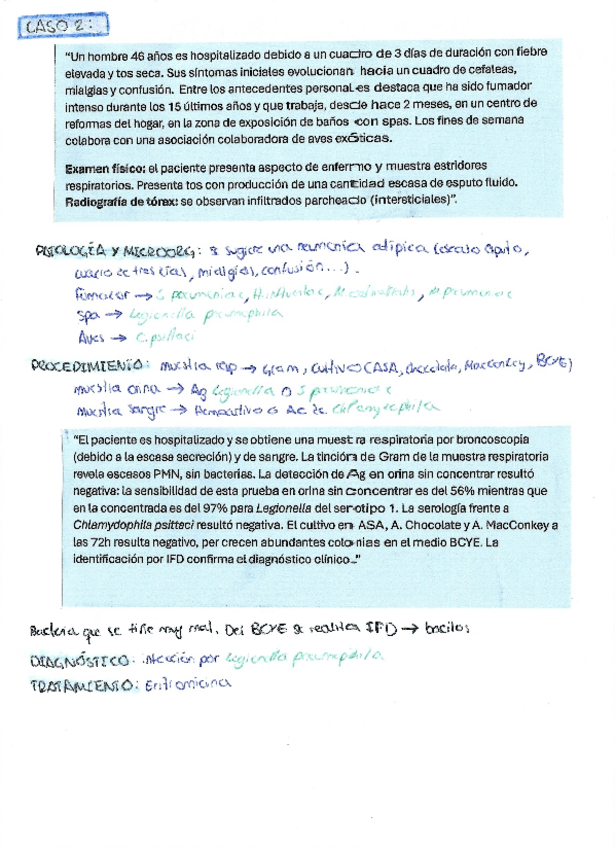 CASO 2:
"Un hombre 46 años es hospitalizado debido a un cuadro de 3 días de duración con fiebre
elevada y tos seca. Sus síntomas iniciales evolucionan hacia un cuadro de cefaleas,
mialgias y confusión. Entre los antecedentes personales destaca que ha sido fumador
intenso durante los 15 últimos años y que trabaja, desde hace 2 meses, en un centro de
reformas del hogar, en la zona de exposición de baños con spas. Los fines de semana
colabora con una asociación colaboradora de aves exóticas.
Examen físico: el paciente presenta aspecto de enfermo y muestra estridores
respiratorios. Presenta tos con producción de una cantidad escasa de esputo fluido.
Radiografía de tórax: se observan infiltrados parcheado (intersticiales)".
PATOLOGÍA Y MICROORG: sugiere una neumonía atípica (escaso esputo,
cuadro de tres días, mialgias, confusión...).
Fumador → S pneumoniae, H. influenzae, M catarrhalis, M pneumoniae
Spa → Legionella pneumophila
Aves → C. psittaci
PROCEDIMIENTO: muestra resp → Gram, cultivo (ASA, chocolate, MacConkey, BCYE)
muestra orina → Ag Legionella o S pneumoniae
Muestra sangre → Ac Chlamydophila
"El paciente es hospitalizado y se obtiene una muestra respiratoria por broncoscopia
(debido a la escasa secreción) y de sangre. La tinción de Gram de la muestra respiratoria
revela escasos PMN, sin bacterias. La detección de Ag en orina sin concentrar resultó
negativa: la sensibilidad de esta prueba en orina sin concentrar es del 56% mientras que
en la concentrada es del 97% para Legionella del serotipo 1. La serología frente a
Chlamydophila psittaci resultó negativa. El cultivo en ASA, A. Chocolate y A. MacConkey a
las 72h resulta negativo, per crecen abundantes colonias en el medio BCYE. La
identificación por IFD confirma el diagnóstico clínico..."
Bacteria que se tiñe muy mal. Del BCYE se realiza IFD → bacilos
DIAGNÓSTICO: infección por Legionella pneumophila
TRATAMIENTO: Eritromicina